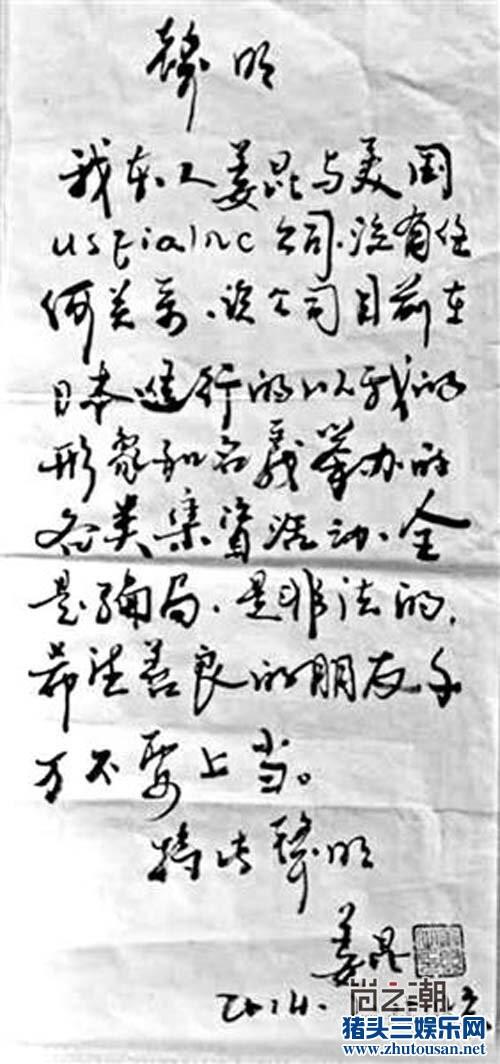 聲明
我本人姜昆与美国
usfia inc 公司.没有任
何关系、该公司目前在
日本進行的以我的
形象和名義举办的
各类集資活动、全
是骗局、是非法的,
希望善良的朋友千
万不要上当。
特此聲明
姜昆
2014.
尚之潮
猪头三娱乐网
www.zhutousan.net